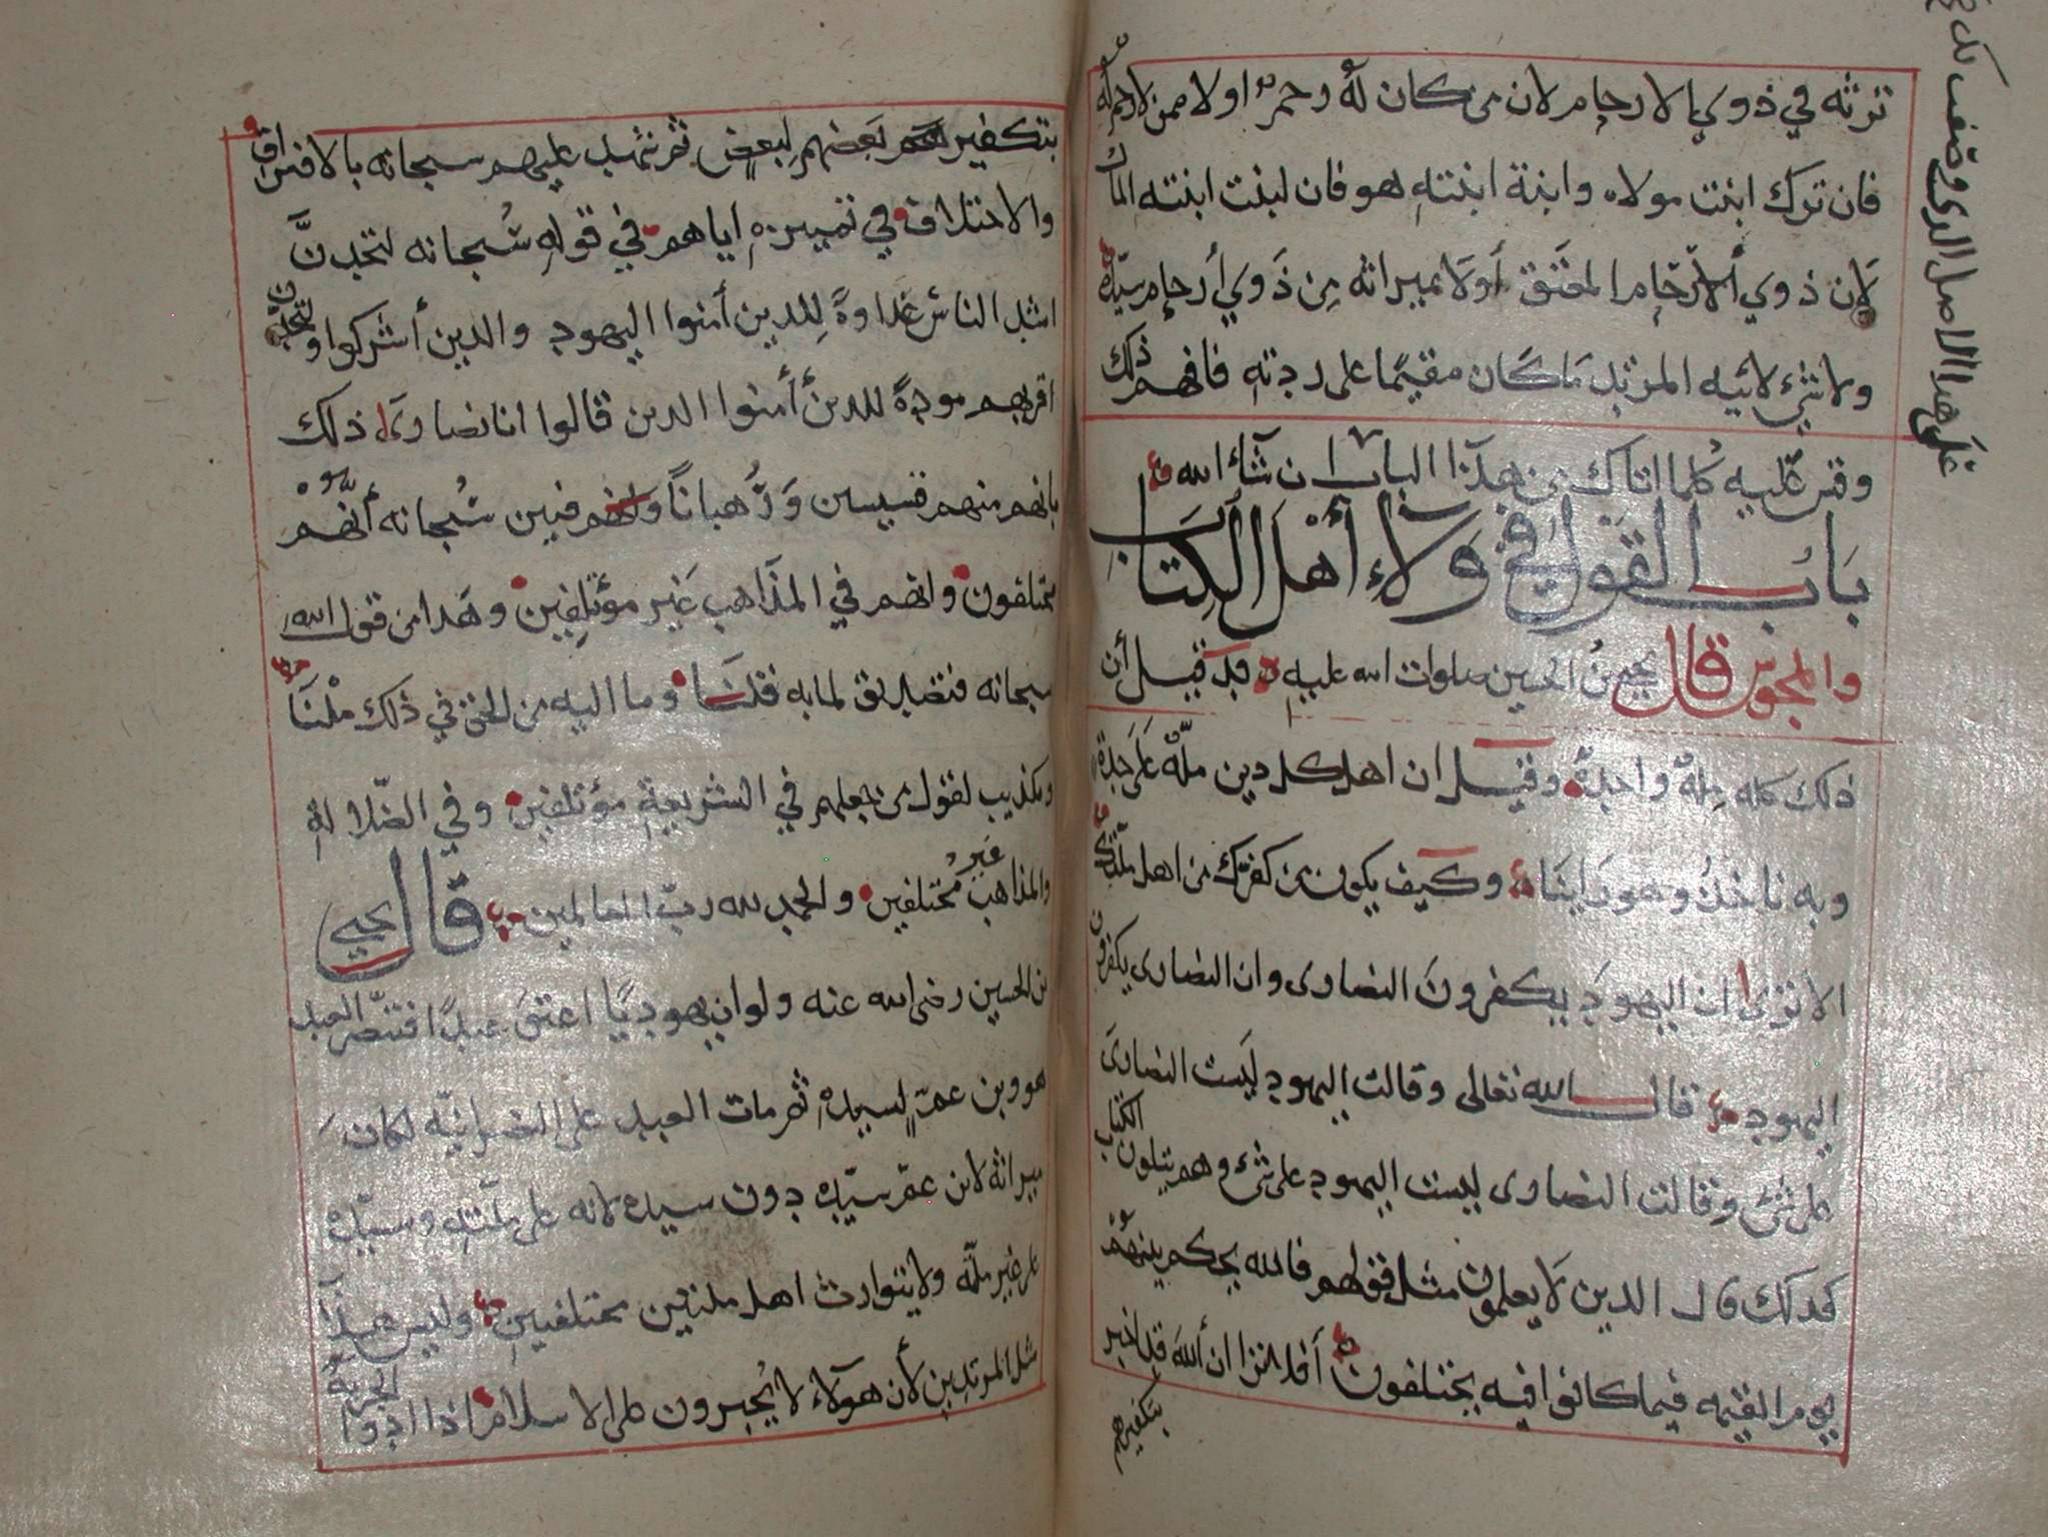 ترثه في ذوي الارحام لان من كان له رحم اولا ممن لا رحم له
فان ترك ابنت مولاه وابنة ابنته هو فان لبنت ابنته المال
لان ذوي ألارحام المعتق أولا بميراثه من ذوي أرحام سيده
ولا شيء لابيه المرتد ما كان مقيما على ردته فافهم ذلك
وقس عليه كلما اتاك من هذا الباب ان شاء الله
باب القول في ولاء أهل الكتاب
والمجوس قال يحيى بن الحسين صلوات الله عليه قد قيل أن
ذلك كله ملة واحدة وقيل ان اهل كل دين ملة على حدة
وبه ناخذ وهو راينا وكيف يكون من كفرك من اهل ملتك
الا ترى ان اليهود يكفرون النصارى وان النصارى يكفرون
اليهود قال الله تعالى وقالت اليهود ليست النصارى
على شيء وقالت النصارى ليست اليهود على شيء وهم يتلون الكتاب
كذلك قال الذين لا يعلمون مثل قولهم فالله يحكم بينهم
يوم القيمه فيما كانوا فيه يختلفون أفلا ترا ان الله قد اخبر
بتكفيرهم
على هذا الاصل الذي وصفت لك
بتكفير بعضهم لبعض ثم شهد عليهم سبحانه بالافتراق
والاختلاف في تمييزه اياهم في قوله سبحانه لتجدن
اشد الناس عداوة للذين أمنوا اليهود والذين أشركوا ولتجدن
اقربهم مودة للذين أأمنوا الذين قالوا انا نصارى ذلك
بانهم منهم قسيسين ورهبانا وانهم فبين سبحانه أنهم
مختلفون وانهم في المذاهب غير مؤتلفين وهذا من قول الله
سبحانه فتصديق لما به قلنا وما اليه من الحق في ذلك ملنا
وتكذيب لقول من جعلهم في الشريعة مؤتلفين وفي الضلالة
والمذاهب غير مختلفين والحمد لله رب العالمين قال يحيى
بن الحسين رضى الله عنه ولو ان يهوديا اعتق عبدا فتنصر العبد
هو وبن عم لسيده ثم مات العبد على النصرانيه لكان
ميراثه لابن عم سيده دون سيده لانه على ملته وسيده
على غير ملته ولا يتوارث اهل ملتين مختلفين وليس هذا
مثل المرتدين لأن هولاء لا يجبرون على الاسلام اذا ادوا الجزية